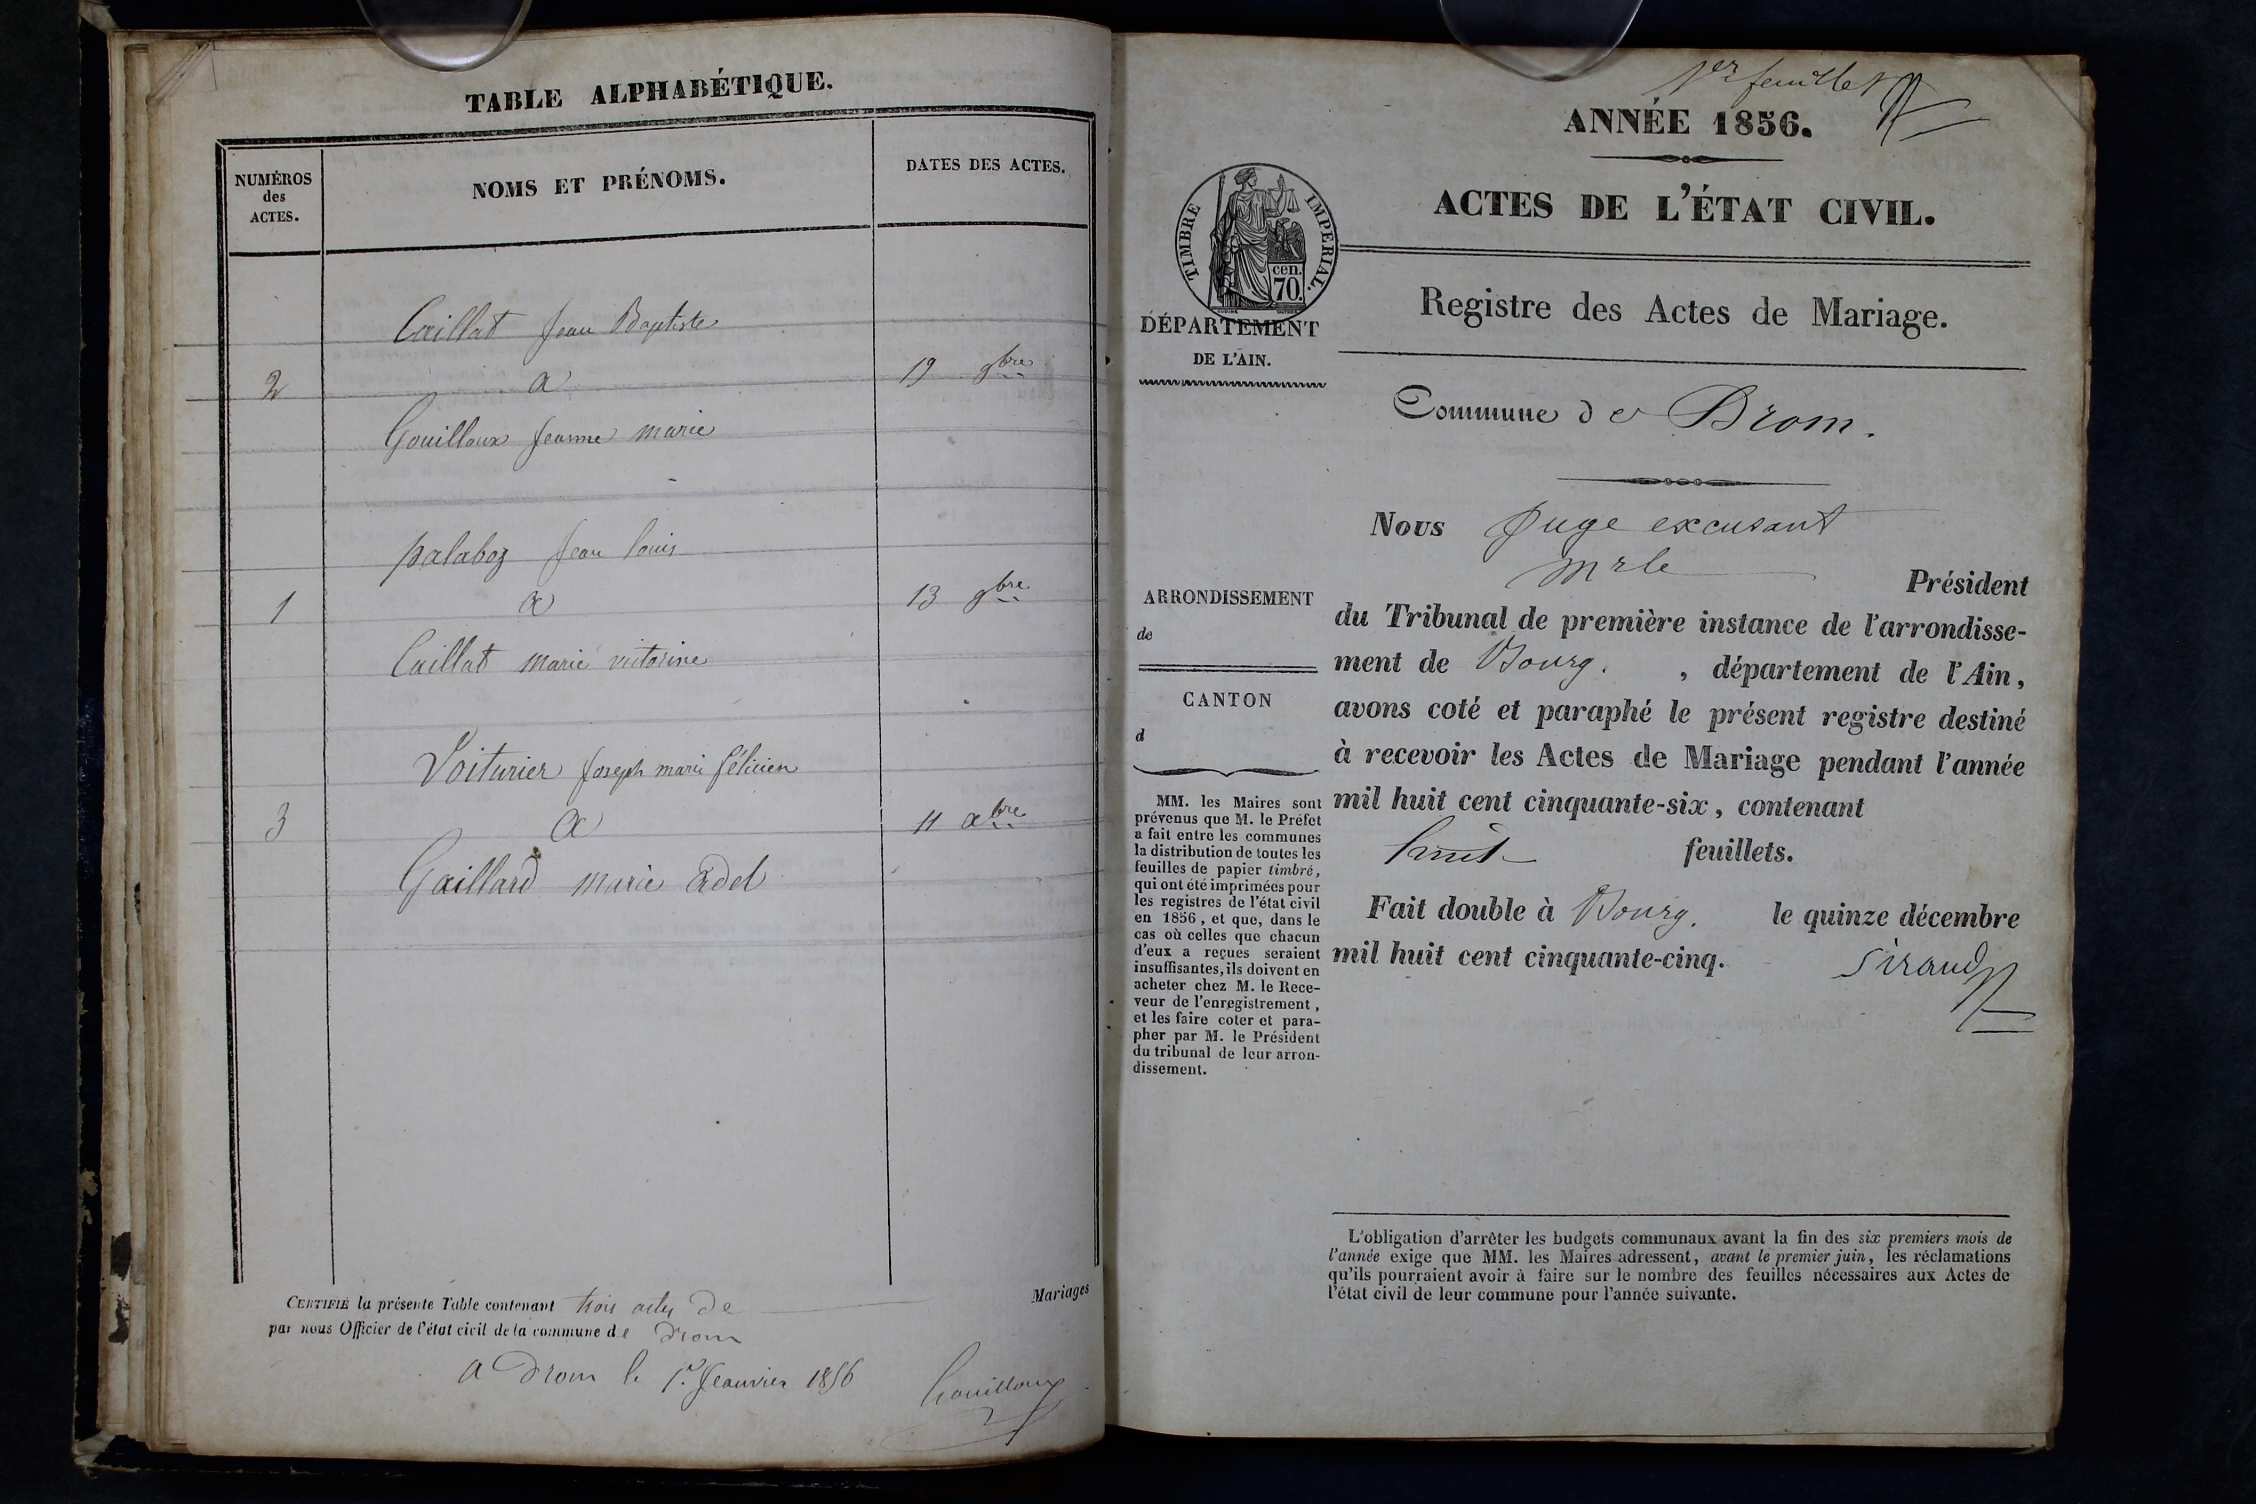 TABLE ALPHABÉTIQUE.
NUMÉROS
des
ACTES.
NOMS ET PRÉNOMS.
DATES DES ACTES.
Caillat Jean Baptiste
2 a 19 9bre
Gouilloux Jeanne marie
palaboz Jean louis
1 a 13 9bre
Caillat marie victorine
Voiturier Joseph marie félicien
3 a 11 xbre
Gaillard marie adel
CERTIFIÉ la présente Table contenant trois actes de Mariages
par nous Officier de l'état civil de la commune de Drom
a Drom le 1er Jeanvier 1856
Gouilloux
1er feuillet
ANNÉE 1856.
ACTES DE L'ÉTAT CIVIL.
TIMBRE IMPERIAL.
cen.
70.
Registre des Actes de Mariage.
DÉPARTEMENT
DE L'AIN.
Commune de Drom.
Nous Juge excusant
Mr le Président
ARRONDISSEMENT
de
CANTON
d
du Tribunal de première instance de l'arrondisse-
ment de Bourg. , département de l'Ain,
avons coté et paraphé le présent registre destiné
à recevoir les Actes de Mariage pendant l'année
mil huit cent cinquante-six, contenant
huit feuillets.
Fait double à Bourg. le quinze décembre
mil huit cent cinquante-cinq.
Siraud
MM. les Maires sont
prévenus que M. le Préfet
a fait entre les communes
la distribution de toutes les
feuilles de papier timbré,
qui ont été imprimées pour
les registres de l'état civil
en 1856, et que, dans le
cas où celles que chacun
d'eux a reçues seraient
insuffisantes, ils doivent en
acheter chez M. le Rece-
veur de l'enregistrement,
et les faire coter et para-
pher par M. le Président
du tribunal de leur arron-
dissement.
L'obligation d'arrêter les budgets communaux avant la fin des six premiers mois de
l'année exige que MM. les Maires adressent, avant le premier juin, les réclamations
qu'ils pourraient avoir à faire sur le nombre des feuilles nécessaires aux Actes de
l'état civil de leur commune pour l'année suivante.